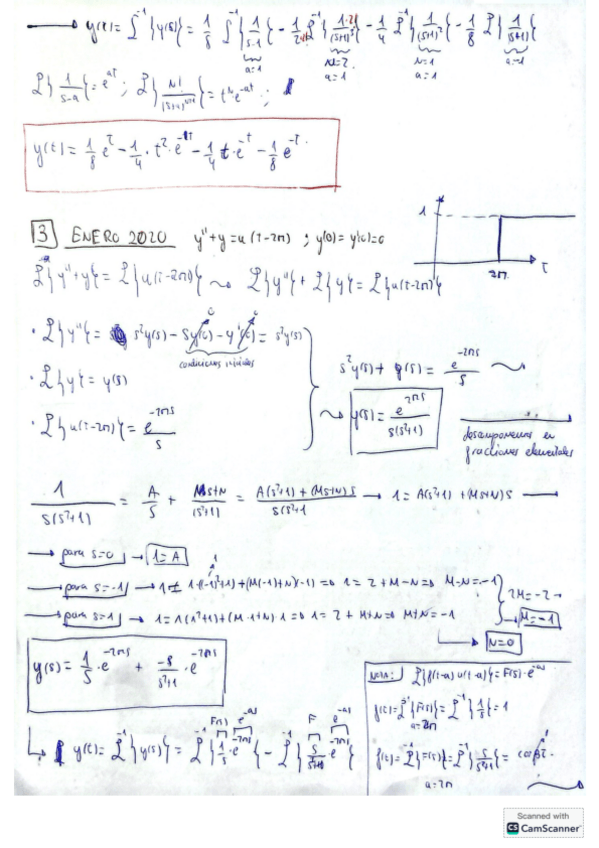 y(t) = ℒ⁻¹{y(s)} = 1/8 ℒ⁻¹{1/(s-1)} - 1/(2·2) ℒ⁻¹{1·2!/(s+1)³} - 1/4 ℒ⁻¹{1/(s+1)²} - 1/8 ℒ{1/(s+1)}
a=1 N=2 N=1 a=1
a=1 a=1
ℒ{1/(s-a)} = e^{at} ; ℒ{N!/(s+a)^{N+1}} = t^N e^{-at} ;
y(t) = 1/8 e^t - 1/4 · t² · e^{-1t} - 1/4 t · e^{-t} - 1/8 e^{-t}
3 ENERO 2020 y''+y = u(t-2π) ; y(0) = y'(0) = 0
1
2π t
ℒ{y''+y} = ℒ{u(t-2π)} ⇝ ℒ{y''} + ℒ{y} = ℒ{u(t-2π)}
· ℒ{y''} = s²y(s) - sy(0) - y'(0) = s²y(s)
condiciones iniciales
· ℒ{y} = y(s)
· ℒ{u(t-2π)} = e^{-2πs}/s
s²y(s) + y(s) = e^{-2πs}/s
y(s) = e^{-2πs}/(s(s²+1))
descomponemos en
fracciones elementales
1/(s(s²+1)) = A/s + (Ms+N)/(s²+1) = (A(s²+1) + (Ms+N)s)/(s(s²+1) → 1 = A(s²+1) + (Ms+N)s
→ para s=0 → 1=A
→ para s=-1 → 1 = 1·((-1)²+1) + (M(-1)+N)(-1) ⇒ 1 = 2+M-N ⇒ M-N = -1
→ para s=1 → 1 = 1(1²+1) + (M·1+N)·1 ⇒ 1 = 2+M+N ⇒ M+N = -1
2M = -2 →
→ M=-1
N=0
y(s) = 1/s · e^{-2πs} + -s/(s²+1) · e^{-2πs}
NOTA: ℒ{f(t-a)u(t-a)} = F(s)·e^{-as}
f(t) = ℒ⁻¹{F(s)} = ℒ⁻¹{1/s} = 1
a=2π
f(t) = ℒ⁻¹{F(s)} = ℒ⁻¹{s/(s²+1)} = cos t.
a=2π
F(s) e^{-as} F e^{-as}
y(t) = ℒ⁻¹{y(s)} = ℒ⁻¹{1/s · e^{-2πs}} - ℒ⁻¹{s/(s²+1) e^{-2πs}}
Scanned with
CS CamScanner